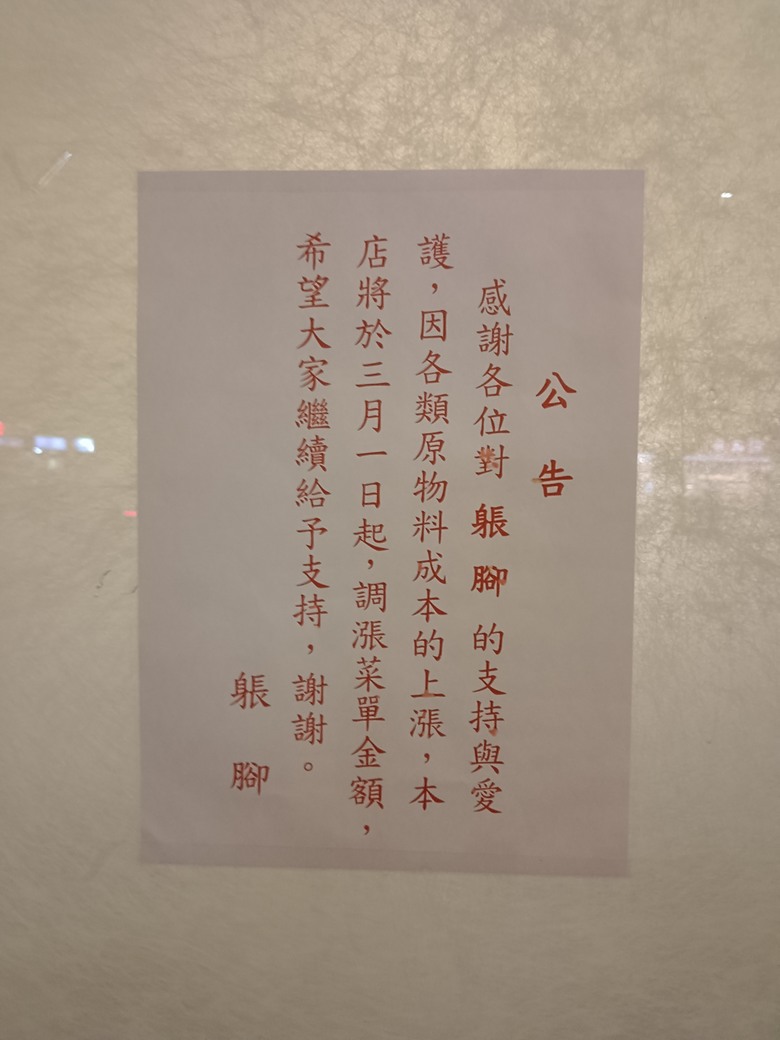 公告
感謝各位對躼腳的支持與愛
護，因各類原物料成本的上漲，本
店將於三月一日起，調漲菜單金額，
希望大家繼續給予支持，謝謝。
躼腳